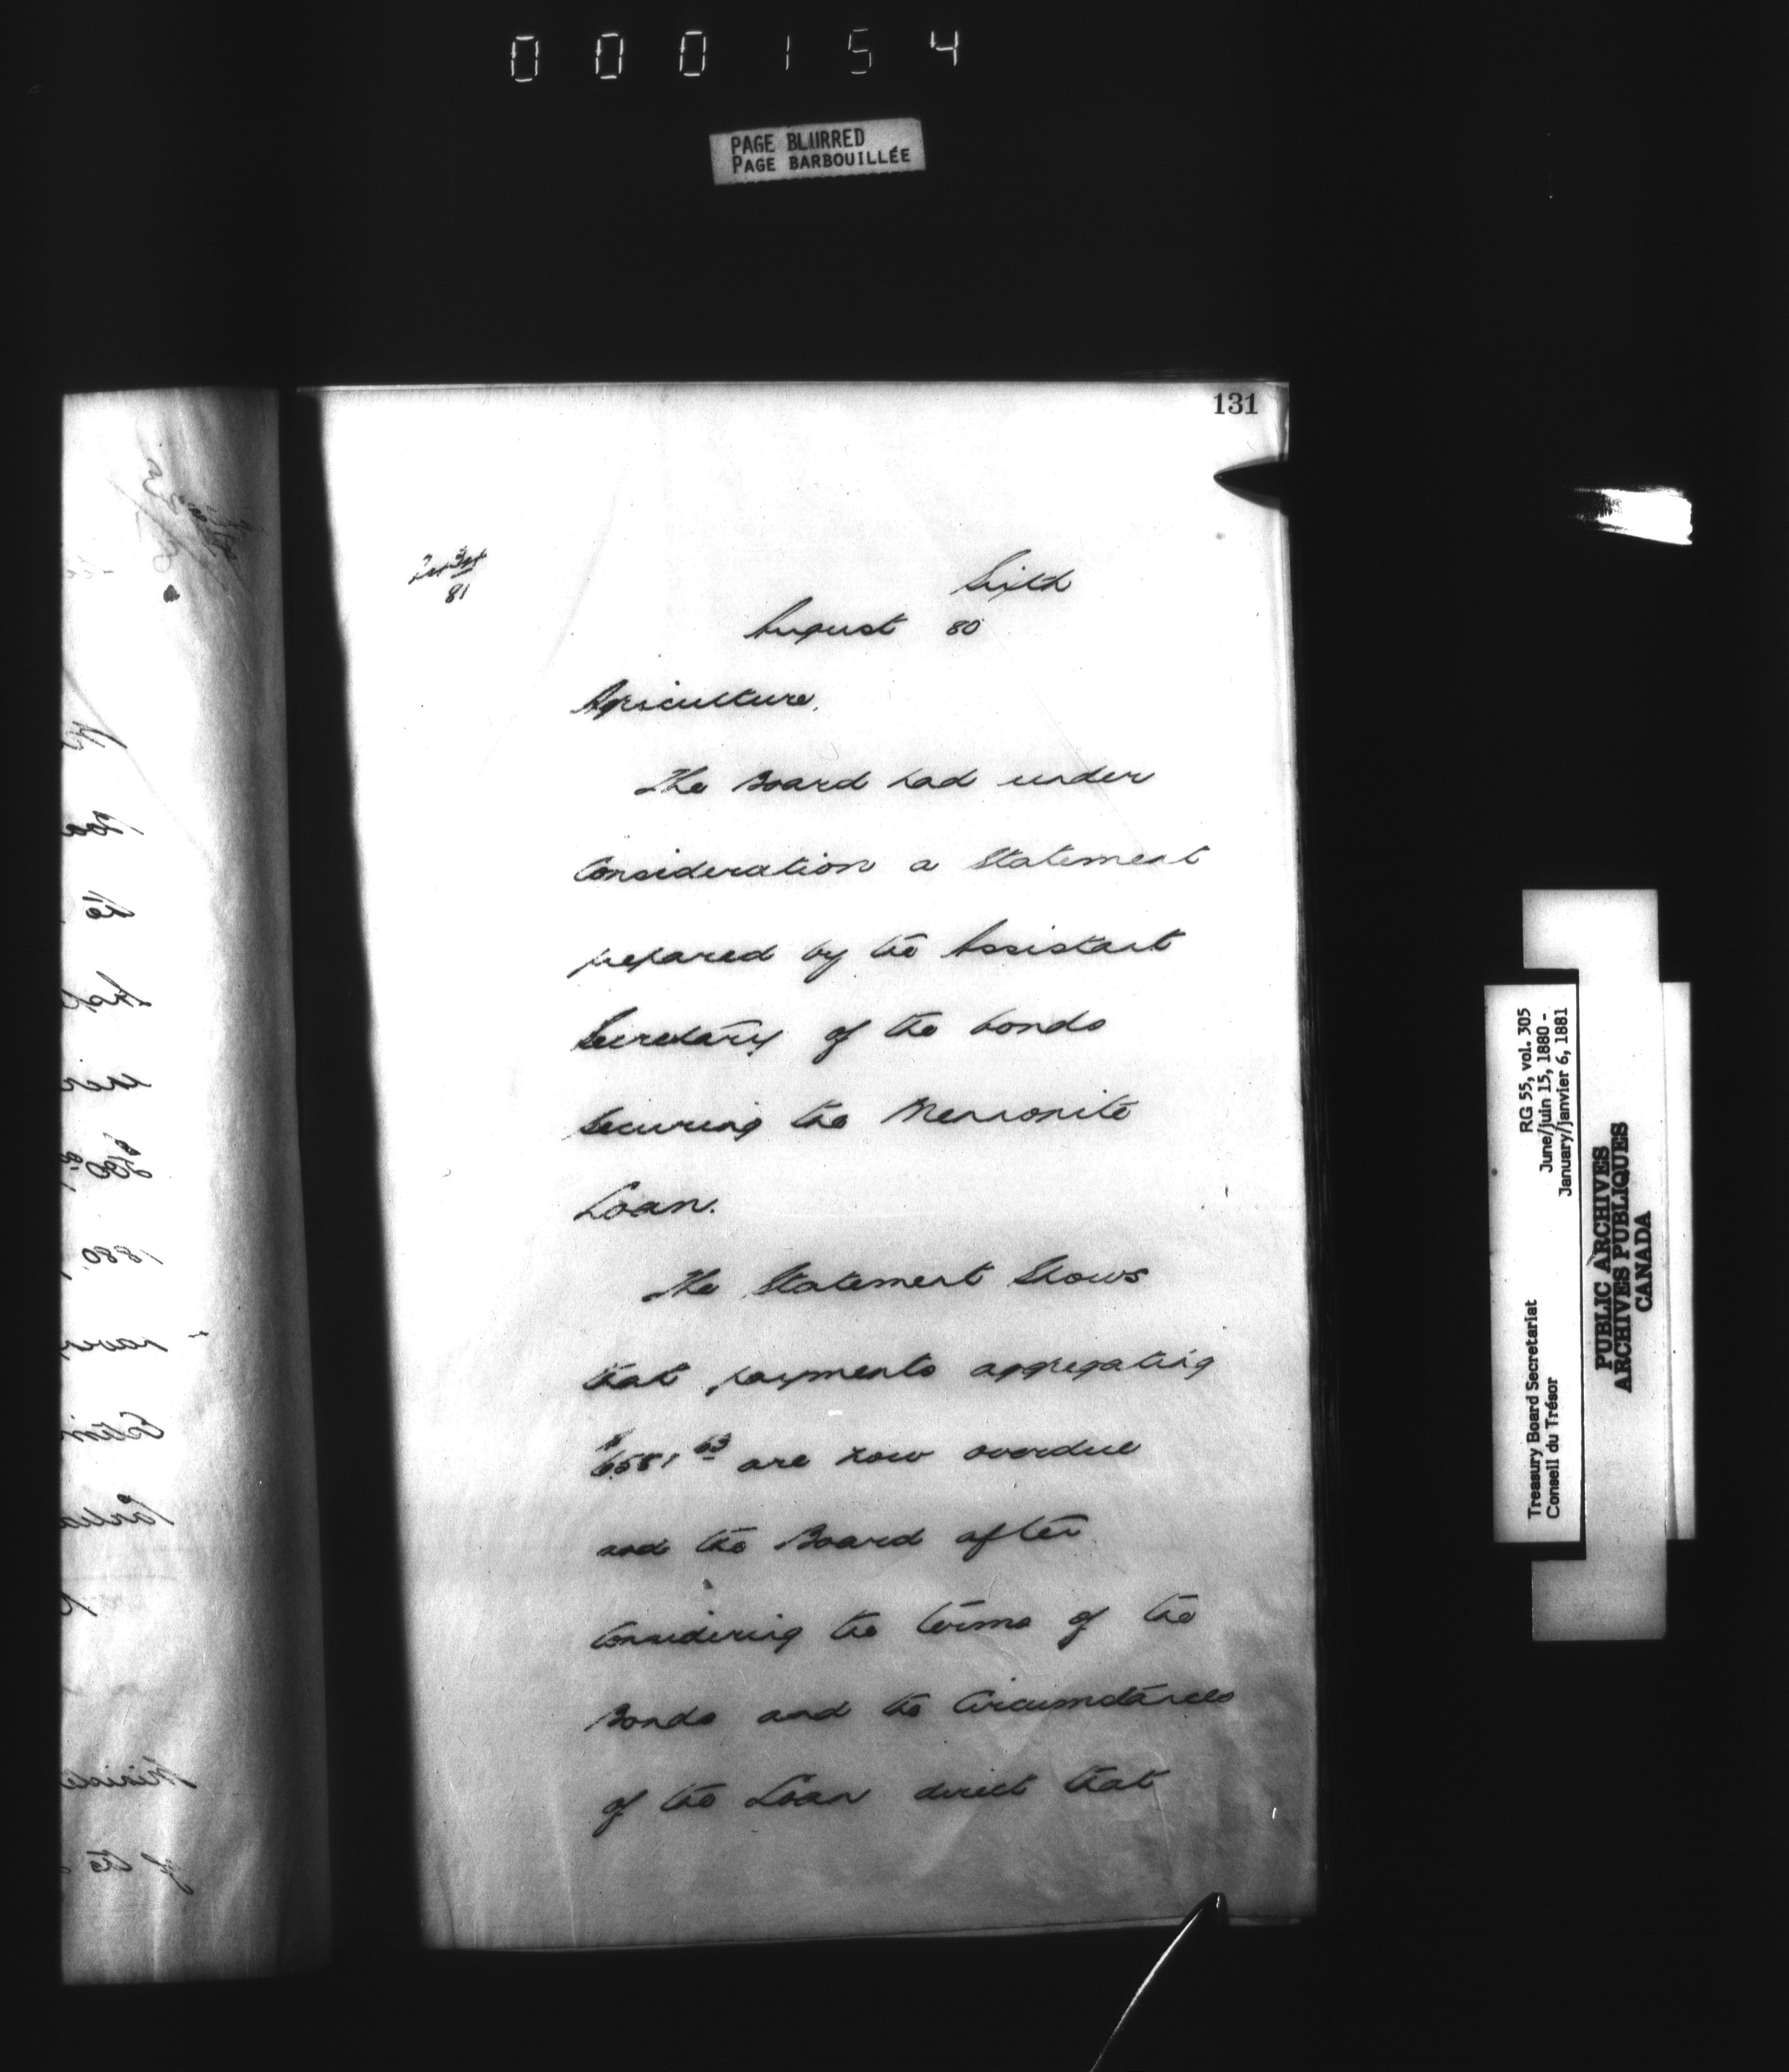 000154
PAGE BLURRED
PAGE BARBOUILLÉE
131
81
Sixth
August 80
Agriculture.
The Board had under
Consideration a Statement
prepared by the Assistant
Secretary of the bonds
Securing the Mennonite
Loan.
The Statement Shows
that payments aggregating
$6581 63 are now overdue
and the Board after
Considering the terms of the
Bonds and the Circumstances
of the Loan direct that
RG 55, vol. 305
June/juin 15, 1880 -
January/janvier 6, 1881
Treasury Board Secretariat
Conseil du Trésor
PUBLIC ARCHIVES
ARCHIVES PUBLIQUES
CANADA